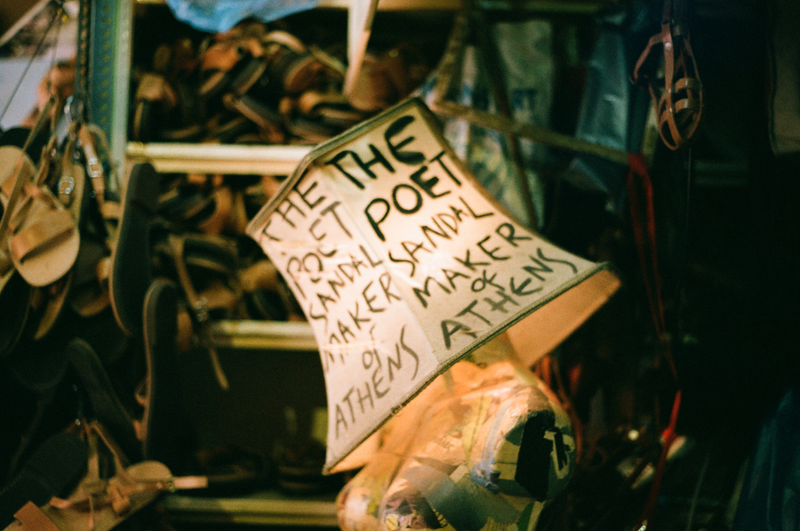 THE
POET
SANDAL
MAKER
of
ATHENS
THE
POET
SANDAL
MAKER
of
ATHENS